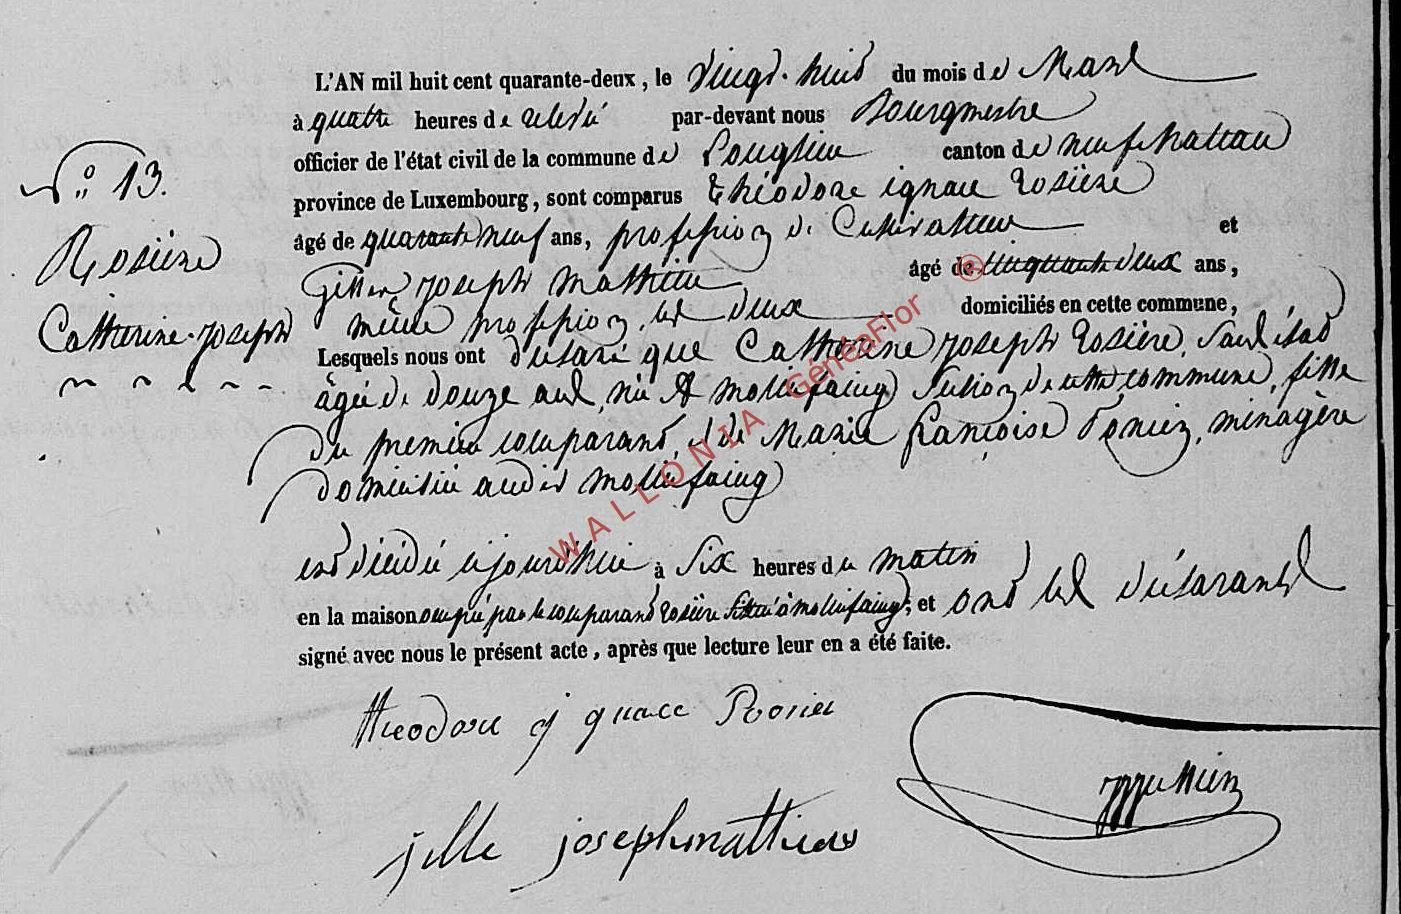 L'AN mil huit cent quarante-deux, le vingt-huit du mois de Mars
à quatre heures de relevée par-devant nous Bourgmestre
officier de l'état civil de la commune de Longlier canton de neufchateau
N° 13.
province de Luxembourg, sont comparus théodore ignace Rosière
âgé de quarante neuf ans, profession de Cultivateur et
Rosière
Gilles joseph Mathieu âgé de cinquante deux ans,
Catherine-joseph
même profession, les deux domiciliés en cette commune,
Lesquels nous ont déclaré que Catherine joseph Rosière, sans état
âgée de douze ans, née à mollifaing section de cette commune, fille
du premier comparant, et de Marie françoise, ménagère
domiciliée audit mollifaing
est décédée aujourd'hui à six heures du matin
en la maison occupée par le comparant Rosière située à mollifaing, et ont les déclarants
signé avec nous le présent acte, après que lecture leur en a été faite.
theodore ignace Rosier
jille joseph mathieu
WALLONIA GénéaFlor ®